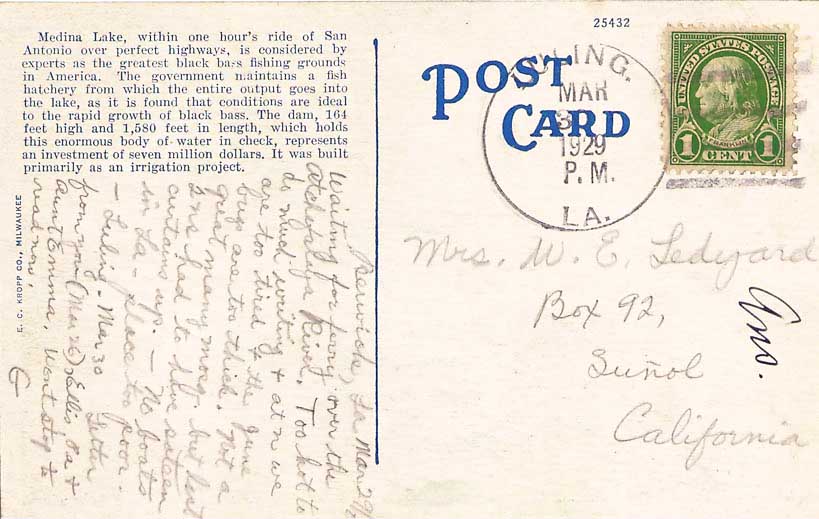 Medina Lake, within one hour's ride of San
Antonio over perfect highways, is considered by
experts as the greatest black bass fishing grounds
in America. The government maintains a fish
hatchery from which the entire output goes into
the lake, as it is found that conditions are ideal
to the rapid growth of black bass. The dam, 164
feet high and 1,580 feet in length, which holds
this enormous body of water in check, represents
an investment of seven million dollars. It was built
primarily as an irrigation project.
E. C. KROPP CO., MILWAUKEE
Berwick, La Mar 29/
Waiting for ferry over the
Atchafalaya River. Too hot to
do much writing & at n we
are too tired & the June
bugs are too thick. Not a
great many mosq. but last
had to have screen
curtains up. — No boats
in La — place too poor.
— Luling - Mar 30 Letter
from you (Mar 26) Ellis Pa &
Aunt Emma. Wont stop to
read now.
C
25432
POST
CARD
LULING.
MAR
1929
P. M.
LA.
UNITED STATES POSTAGE
FRANKLIN
1 CENT 1
Mrs. W. E. Ledyard
Box 92,
Suñol
California
Ans.